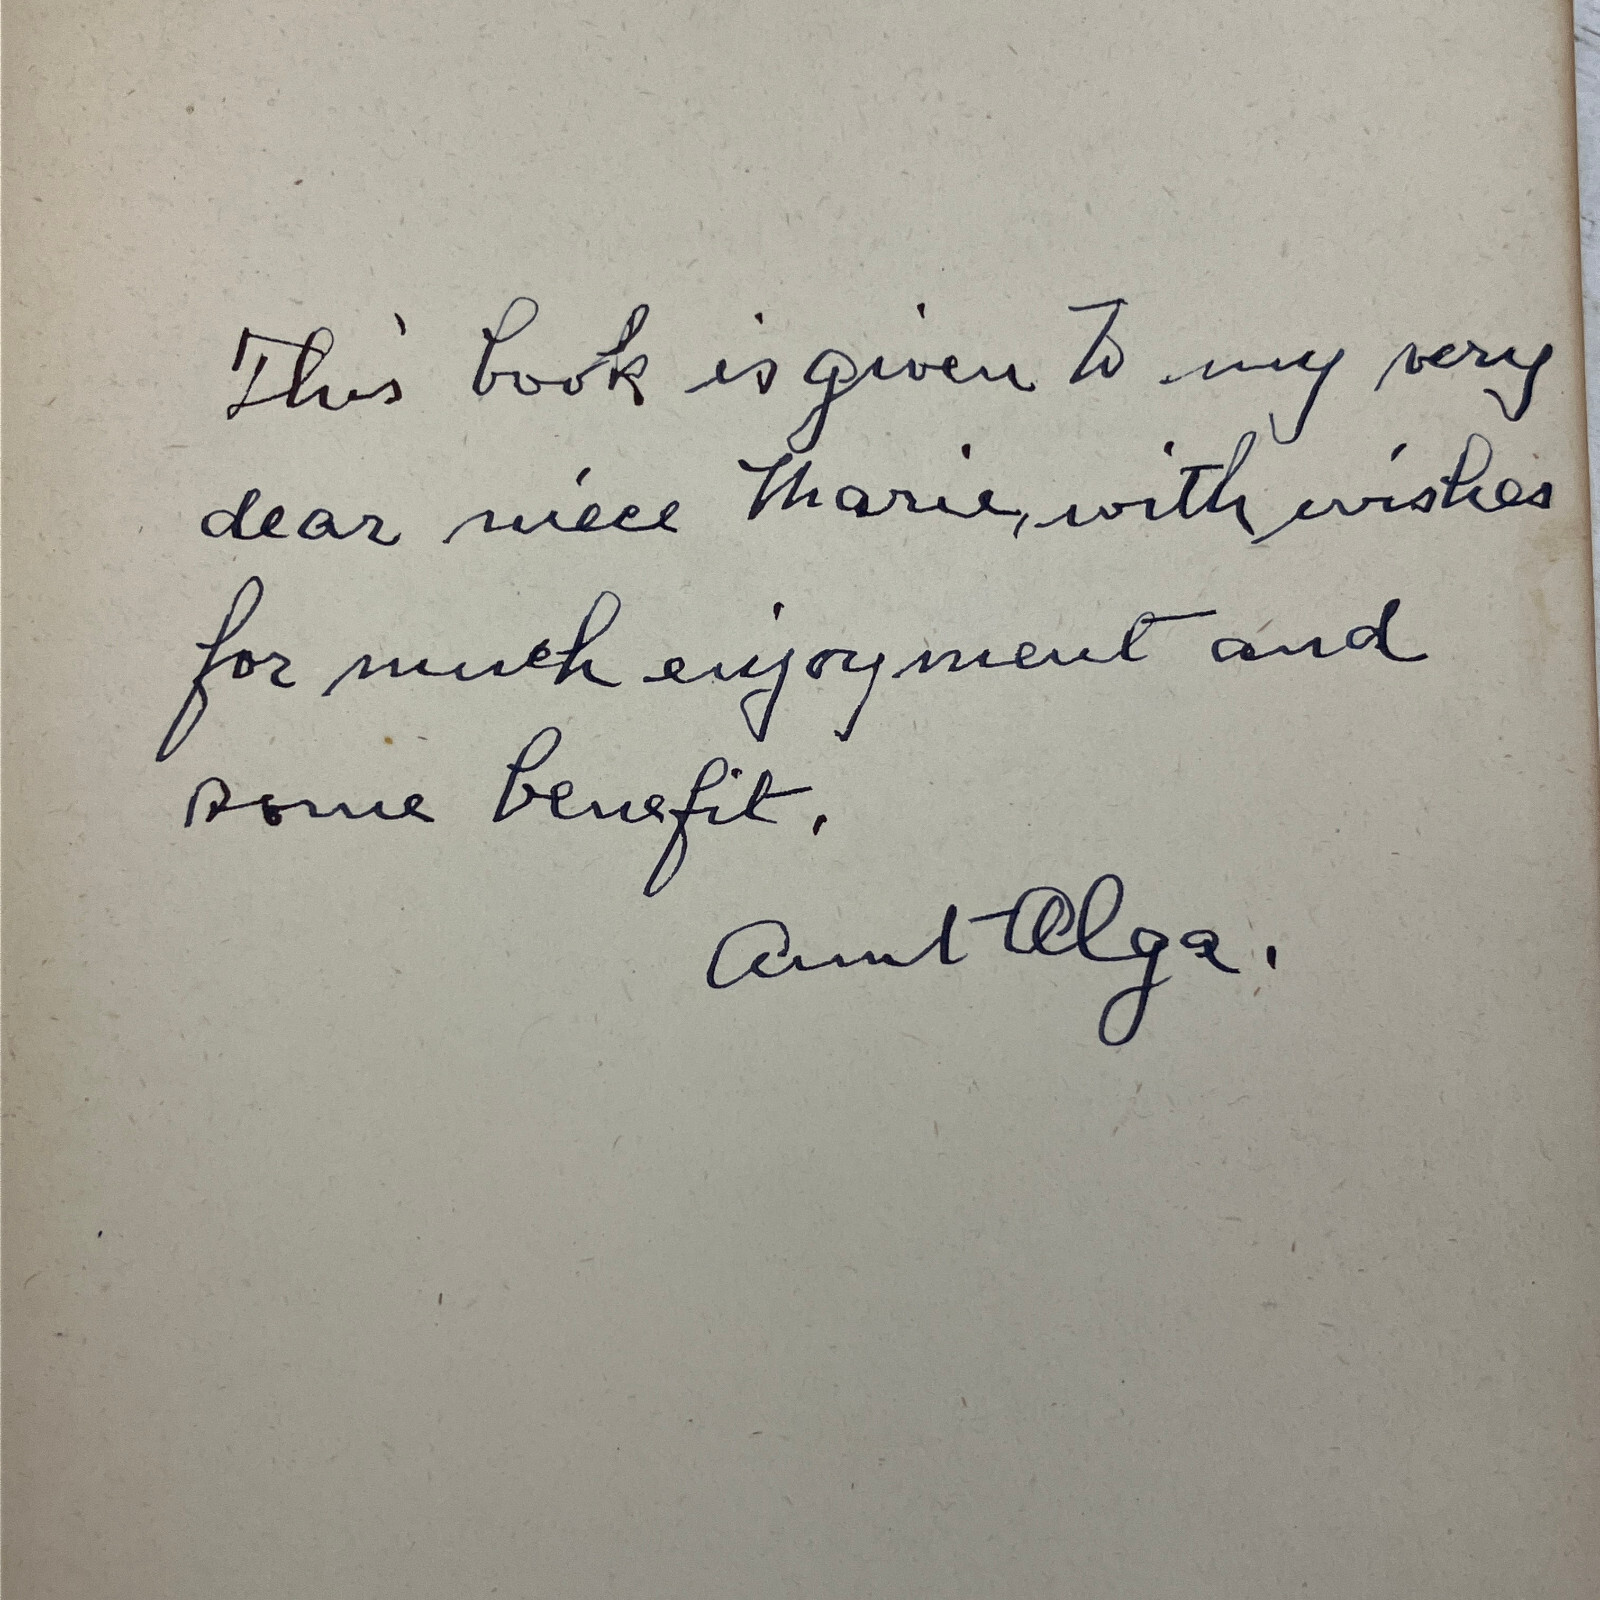 This book is given to my very
dear niece Marie, with wishes
for much enjoyment and
some benefit.
Aunt Olga.